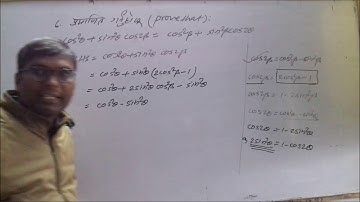 ८ प्रमाणित गर्नुहोस् (prove that):
cos²θ + sin²θ cos2β = cos²β + sin²β cos2θ
LHS = cos²θ + sin²θ cos2β
= cos²θ + sin²θ (2cos²β - 1)
= cos²θ + 2sin²θ cos²β - sin²θ
= cos²θ - sin²θ
cos2β = cos²β - sin²β
cos2β = 2cos²β - 1
cos2β = 1 - 2sin²β
cos2θ = cos²θ - sin²θ
cos2θ = 1 - 2sin²θ
2sin²θ = 1 - cos2θ